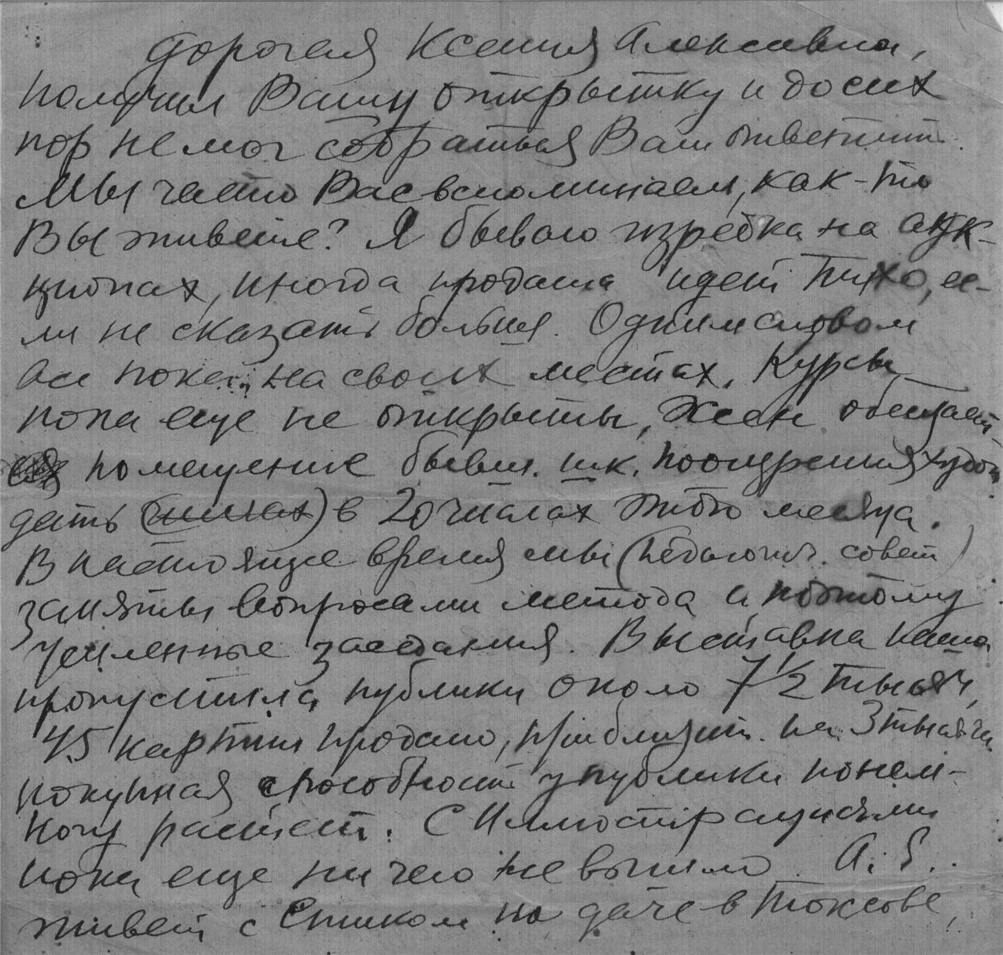 Дорогая Ксения Алексеевна,
получил Вашу открытку и до сих
пор не мог собраться Вам ответить.
Мы часто Вас вспоминаем, как-то
Вы живете? Я бываю изредка на аук-
ционах, иногда продажа идет тихо, ес-
ли не сказать больше. Одним словом
все пока на своих местах. Курсы
пока еще не открыты, обещают
помещение бывш. шк. поощрения худож
дать в 20 числах этого месяца.
В настоящее время мы (педагогич. совет)
заняты вопросами метода и поэтому
усиленные заседания. Выставка наша
пропустила публики около 7½ тысяч,
45 картин продано, приблизит. на 3 тысячи
покупная способность у публики понем-
ногу растет. С Иллюстрациями
пока еще ничего не вышло. А. Е.
живет с на даче в Токсове,